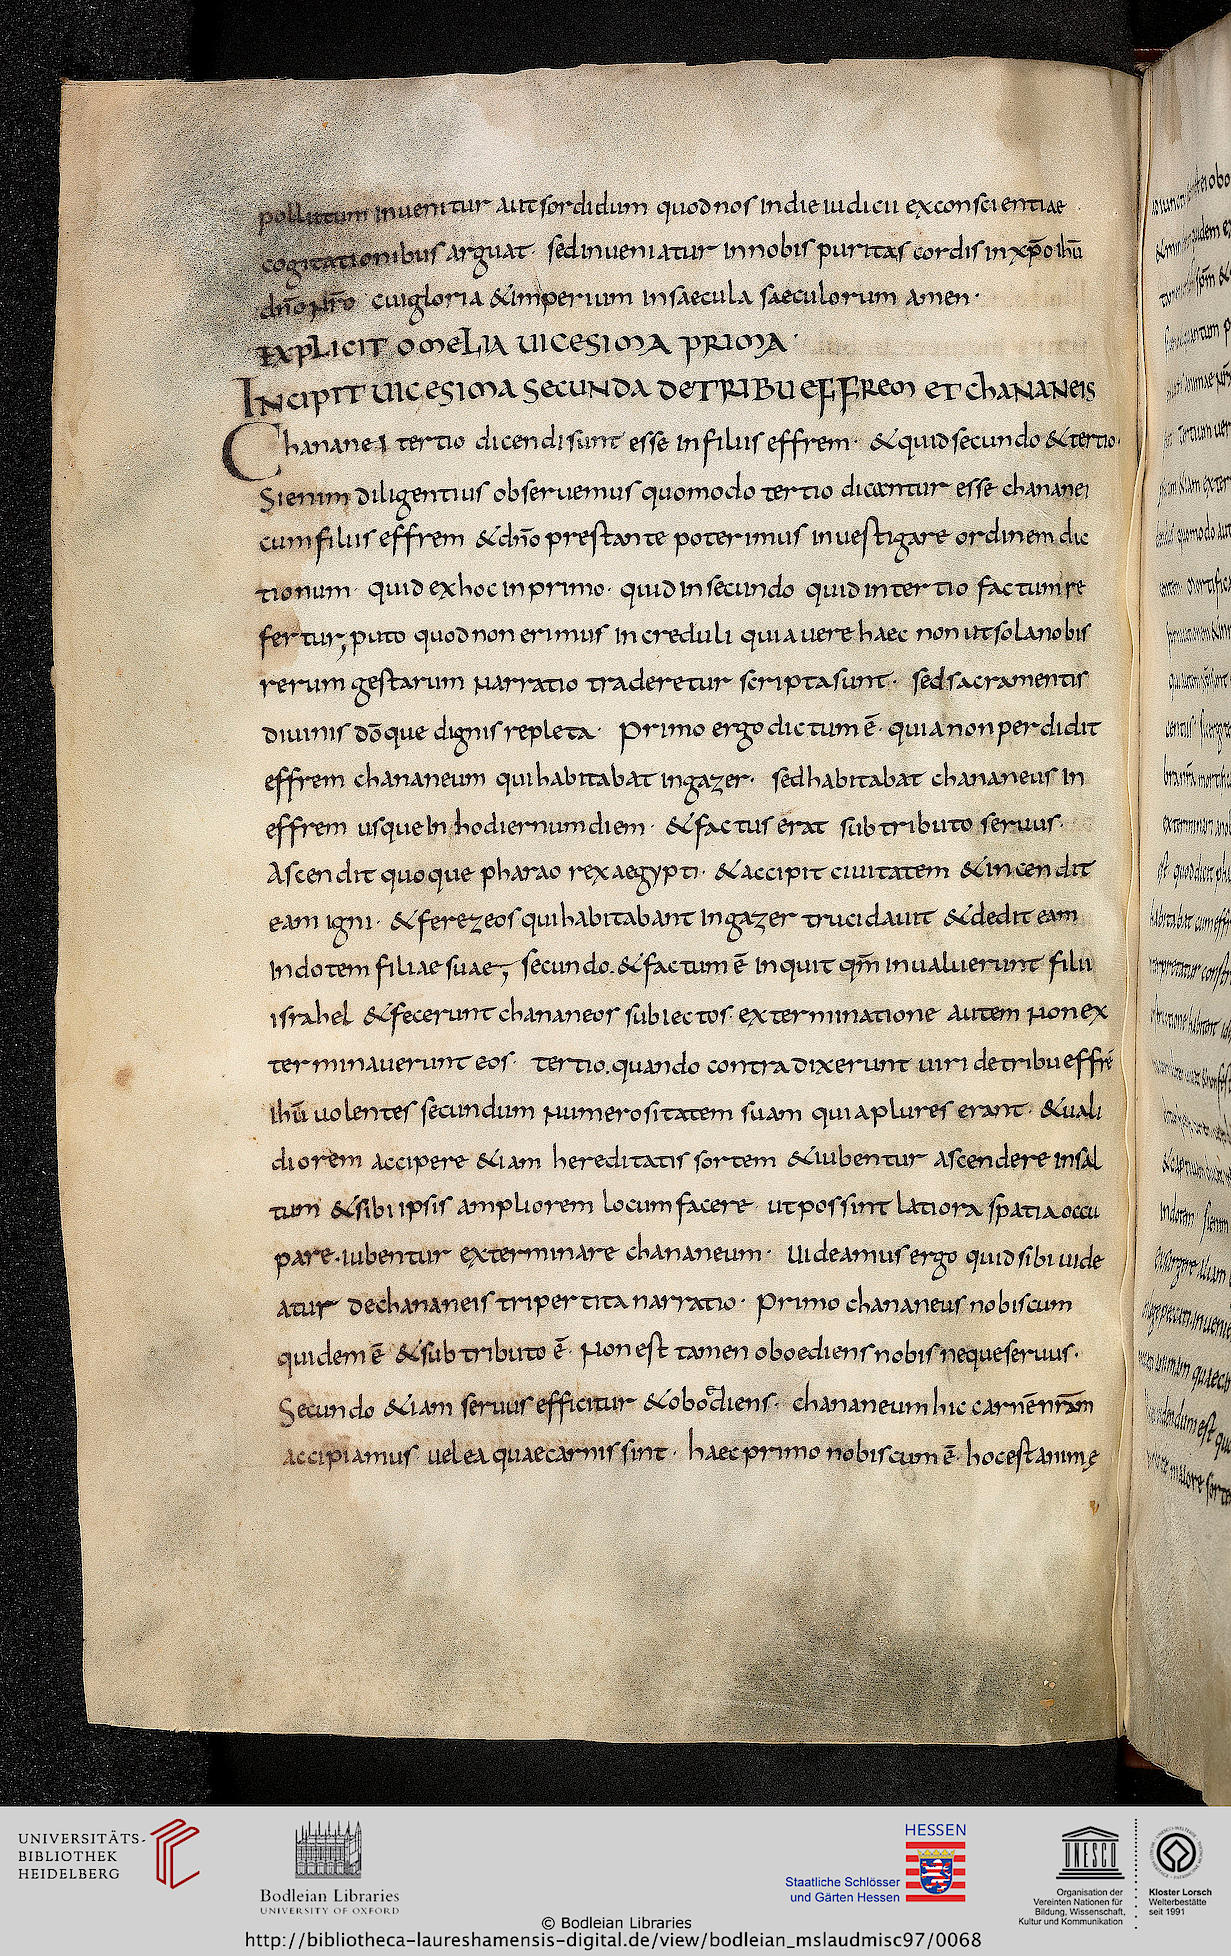 pollutum inuenitur aut sordidum quod nos in die iudicii ex conscientiae
cogitationibus arguat · sed inueniatur in nobis puritas cordis in xp̄o ihū
dn̄o nr̄o cui gloria & imperium in saecula saeculorum amen ·
EXPLICIT OMELIA UICESIMA PRIMA ·
INCIPIT UICESIMA SECUNDA DE TRIBU EFFREM ET CHANANEIS
Chananei tertio dicendi sunt esse in filiis effrem · & quid secundo & tertio ·
Si enim diligentius obseruemus quomodo tertio dicantur esse chananei
cum filiis effrem & dn̄o prestante poterimus inuestigare ordinem dic
tionum · quid ex hoc in primo · quid in secundo quid in tertio factum re
fertur; puto quod non erimus increduli quia uere haec non ut sola nobis
rerum gestarum narratio traderetur scripta sunt · sed sacramentis
diuinis dōque dignis repleta · Primo ergo dictum ē · quia non perdidit
effrem chananeum qui habitabat in gazer · sed habitabat chananeus in
effrem usque in hodiernum diem · & factus erat sub tributo seruus ·
Ascendit quoque pharao rex aegypti · & accipit ciuitatem & incendit
eam igni · & ferezeos qui habitabant in gazer trucidauit & dedit eam
in dotem filiae suae; secundo. & factum ē inquit qm̄ inualuerunt filii
israhel & fecerunt chananeos subiectos · exterminatione autem non ex
terminauerunt eos · tertio. quando contradixerunt uiri de tribu effrē
ihū uolentes secundum numerositatem suam quia plures erant · & uali
diorem accipere & iam hereditatis sortem & iubentur ascendere in sal
tum & sibi ipsis ampliorem locum facere · ut possint latiora spatia occu
pare · iubentur exterminare chananeum · Uideamus ergo quid sibi uide
atur de chananeis tripertita narratio · Primo chananeus nobiscum
quidem ē & sub tributo ē · Non est tamen oboediens nobis neque seruus ·
Secundo & iam seruus efficitur & obodiens · chananeum hic carnē nr̄am
accipiamus uel ea quae carnis sint · haec primo nobiscum ē · hoc est animę
UNIVERSITÄTS-
BIBLIOTHEK
HEIDELBERG
Bodleian Libraries
UNIVERSITY OF OXFORD
HESSEN
Staatliche Schlösser
und Gärten Hessen
UNESCO
Organisation der
Vereinten Nationen für
Bildung, Wissenschaft,
Kultur und Kommunikation
Kloster Lorsch
Welterbestätte
seit 1991
© Bodleian Libraries
http://bibliotheca-laureshamensis-digital.de/view/bodleian_mslaudmisc97/0068